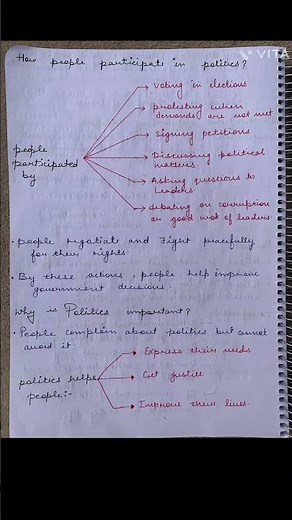 VITA
How people participate in politics?
people participated by
voting in elections
protesting when
demands are not met
Signing petitions
Discussing political
matters
Asking questions to
Leaders
debating on corruption
or good work of leaders.
• people negotiate and Fight peacefully
for their rights.
• By these actions, people help improve
government decisions.
Why is Politics important?
• People complain about politics but cannot
avoid it.
politics helps
people:-
Express their needs
Get justice
Improve their lives.